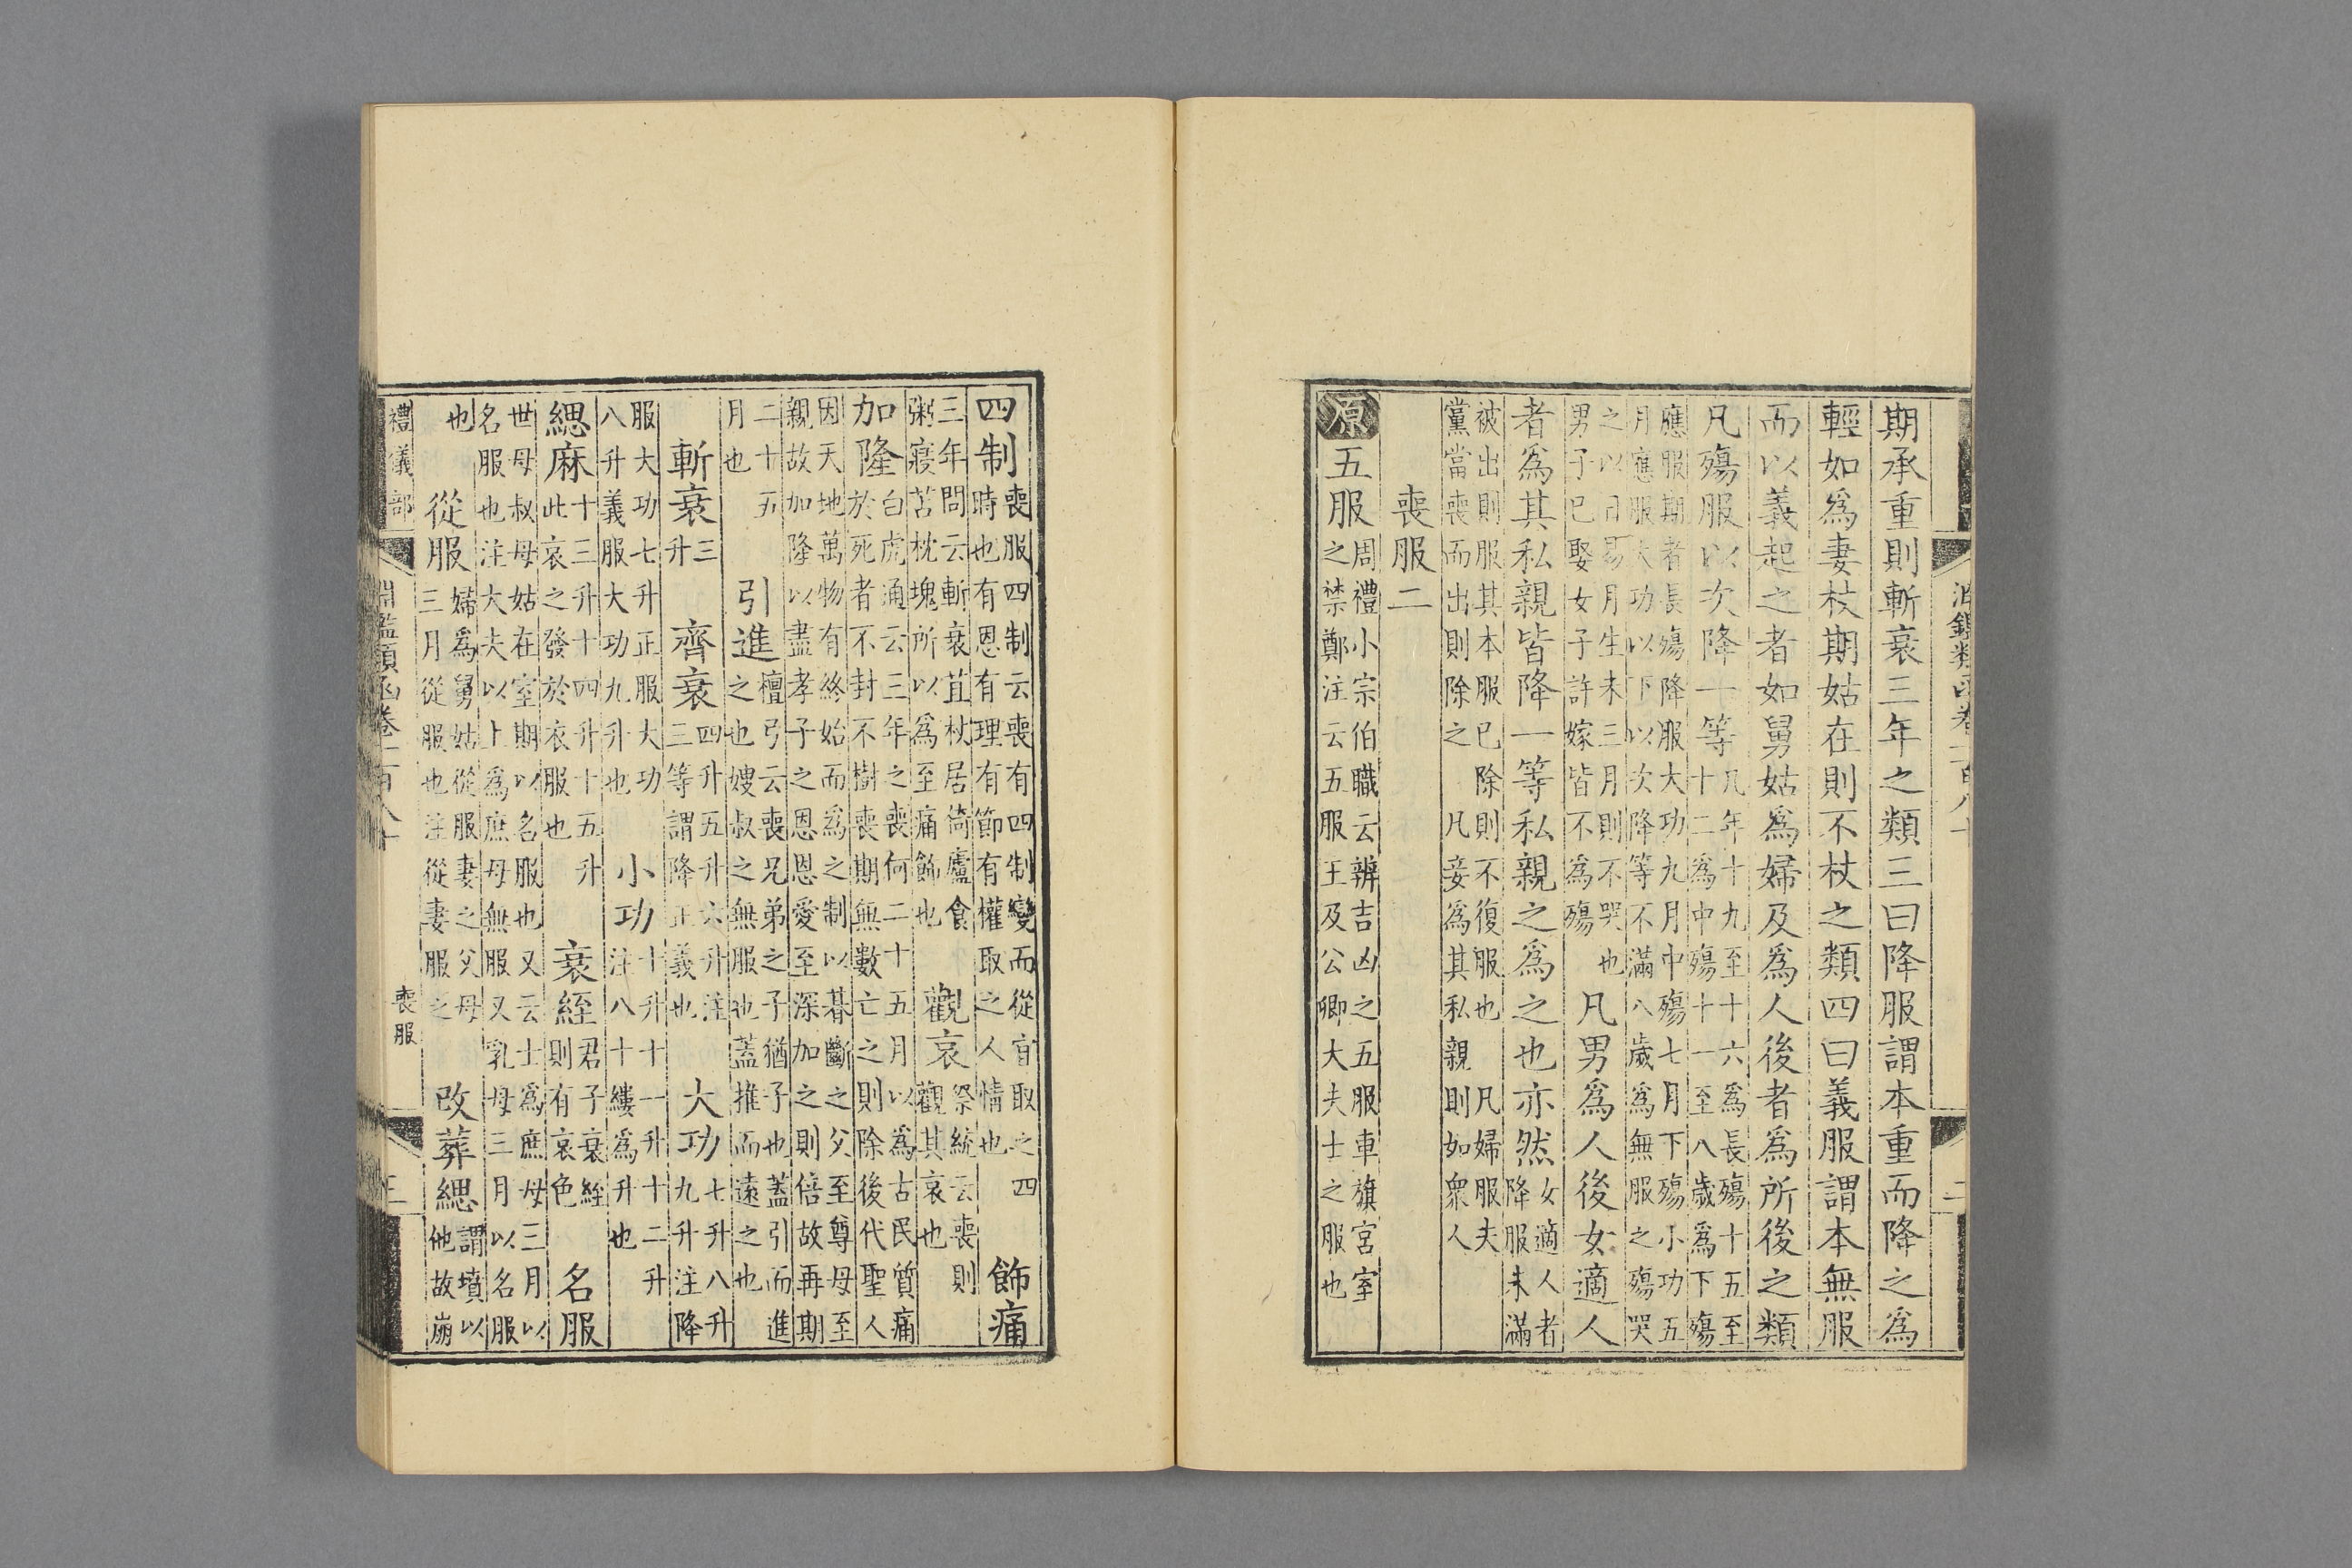 期承重則斬衰三年之類三曰降服謂本重而降之爲
輕如爲妻杖期姑在則不杖之類四曰義服謂本無服
而以義起之者如舅姑爲婦及爲人後者爲所後之類
凡殤服以次降一等凡年十九至十六爲長殤十五至十二爲中殤十一至八歲爲下殤
應服期者長殤降服大功九月中殤七月下殤小功五月應服大功以下以次降等不滿八歲爲無服之殤哭
之以日易月生未三月則不哭也男子已娶女子許嫁皆不爲殤 凡男爲人後女適人
者爲其私親皆降一等私親之爲之也亦然女適人者降服未滿
被出則服其本服已除則不復服也 凡婦服夫黨當喪而出則除之 凡妾爲其私親則如衆人
喪服二
原五服周禮小宗伯職云辨吉凶之五服車旗宮室之禁鄭注云五服王及公卿大夫士之服也
四制喪服四制云喪有四制變而從宜取之四時也有恩有理有節有權取之人情也 飾痛
三年問云斬衰苴杖居倚廬食粥寢苫枕塊所以爲至痛飾也 觀哀祭統云喪則觀其哀也
加隆白虎通云三年之喪何二十五月以爲古民質痛於死者不封不樹喪期無數亡之則除後代聖人
因天地萬物有終始而爲之制以朞斷之父至尊母至親故加隆以盡孝子之恩恩愛至深加之則倍故再期
二十五月也 引進檀弓云喪兄弟之子猶子也蓋引而進之也嫂叔之無服也蓋推而遠之也
斬衰三升 齊衰四升五升六升注三等謂降正義也 大功七升八升九升注降
服大功七升正服大功八升義服大功九升也 小功十升十一升十二升注八十縷爲升也
緦麻十三升十四升十五升此哀之發於衣服也 衰絰君子衰絰則有哀色 名服
世母叔母姑在室期以名服也又云士爲庶母三月以名服也注大夫以上爲庶母無服又乳母三月以名服
也 從服婦爲舅姑從服妻之父母三月從服也注從妻服之 改葬緦謂墳以他故崩
禮儀部 淵鑑類函卷一百八十 喪服 三